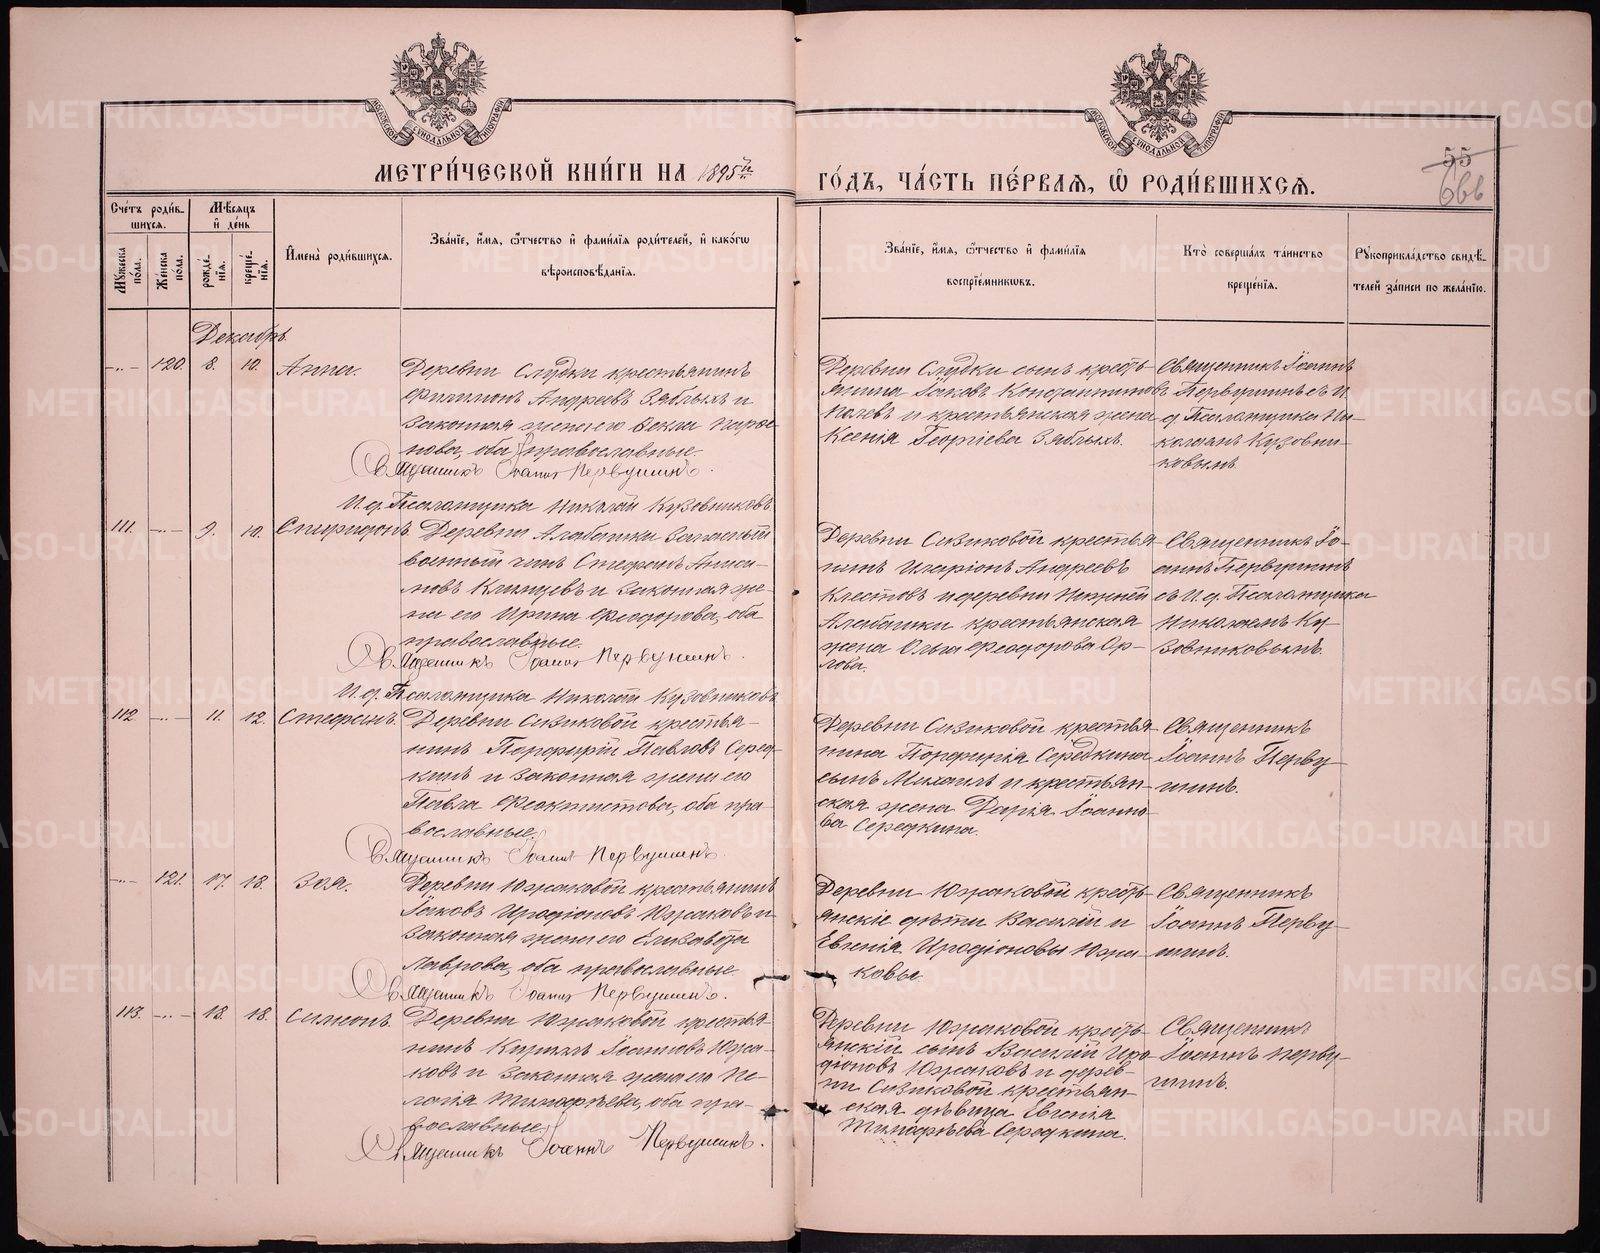 МОСКОВСКОЙ СѴНОДАЛЬНОЙ ТИПОГРАФІИ
МОСКОВСКОЙ СѴНОДАЛЬНОЙ ТИПОГРАФІИ
МЕТРИ́ЧЕСКОЙ КНИ́ГИ НА 1895й
ГО́ДЪ, ЧА́СТЬ ПЕ́РВАЯ, Ѡ РОДИ́ВШИХСЯ.
55
Сче́тъ роди́вшихся.
Мꙋ́жеска по́ла.
Же́нска по́ла.
Мѣ́сяцъ и де́нь
рожде́нїя.
креще́нїя.
И҆мена̀ роди́вшихся.
Зва́нїе, и҆́мя, ѻ҆́тчество и҆ фами́лїя роди́телей, и҆ како́гѡ
вѣроисповѣ́данїя.
Зва́нїе, и҆́мя, ѻ҆́тчество и҆ фами́лїя
воспрїе́мникѡвъ.
Кто̀ соверша́лъ та́инство
креще́нїя.
Рꙋкоприкла́дство свидѣ́-
телей за́писи по жела́нїю.
Декабрь
-"- 120. 8. 10. Анна.
Деревни Слудки крестьянинъ
Филимонъ Андреевъ Зяблыхъ и
законная жена его Ѳекла
, оба православные.
Священникъ Іоаннъ Первушинъ.
И. д. Псаломщика Николай Кузовниковъ.
Деревни Слудки сынъ кресть-
янина Іаковъ Константиновъ
и крестьянская жена
Ксенія Георгіева Зяблыхъ.
Священникъ Іоаннъ
Первушинъ съ И.
д. Псаломщика Ни-
колаемъ Кузовни-
ковымъ.
111. -"- 9. 10. Спиридонъ.
Деревни Алабашки запасный
военный чинъ Стефанъ
и законная же-
на его Ирина Ѳеодорова, оба
православные.
Священникъ Іоаннъ Первушинъ.
И. д. Псаломщика Николай Кузовниковъ.
Деревни Сизиковой крестья-
нинъ Иларіонъ Андреевъ
Клестовъ и деревни Нижней
Алабашки крестьянская
жена Ольга Ѳеодорова Ор-
лова.
Священникъ Іо-
аннъ Первушинъ
съ И. д. Псаломщика
Николаемъ Ку-
зовниковымъ.
112 -"- 11. 12. Стефанъ.
Деревни Сизиковой крестья-
нинъ Порфирій Павловъ Серед-
кинъ и законная жена его
Павла Ѳеоктистова, оба пра-
вославные.
Священникъ Іоаннъ Первушинъ.
Деревни Сизиковой крестья-
нина Порфирія Середкина
сынъ Михаилъ и крестьян-
ская жена Дарія Іоанно-
ва Середкина.
Священникъ
Іоаннъ Перву-
шинъ.
-"- 121. 17. 18. Зоя.
Деревни Южаковой крестьянинъ
Іаковъ Иродіоновъ Южаковъ и
законная жена его Елизавета
Лаврова, оба православные
Священникъ Іоаннъ Первушинъ.
Деревни Южаковой кресть-
янскіе дѣти Василій и
Евгенія Иродіоновы Южа-
ковы.
Священникъ
Іоаннъ Перву-
шинъ.
113. -"- 18. 18. Симеонъ.
Деревни Южаковой крестья-
нинъ Кириллъ Іоанновъ Южа-
ковъ и законная жена его Пе-
лагія Тимофѣева, оба пра-
вославные.
Священникъ Іоаннъ Первушинъ.
Деревни Южаковой кресть-
янскій сынъ Василій Иро-
діоновъ Южаковъ и дерев-
ни Сизиковой крестьян-
ская дѣвица Евгенія
Тимофѣева Середкина.
Священникъ
Іоаннъ Перву-
шинъ.
METRIKI.GASO-URAL.RU